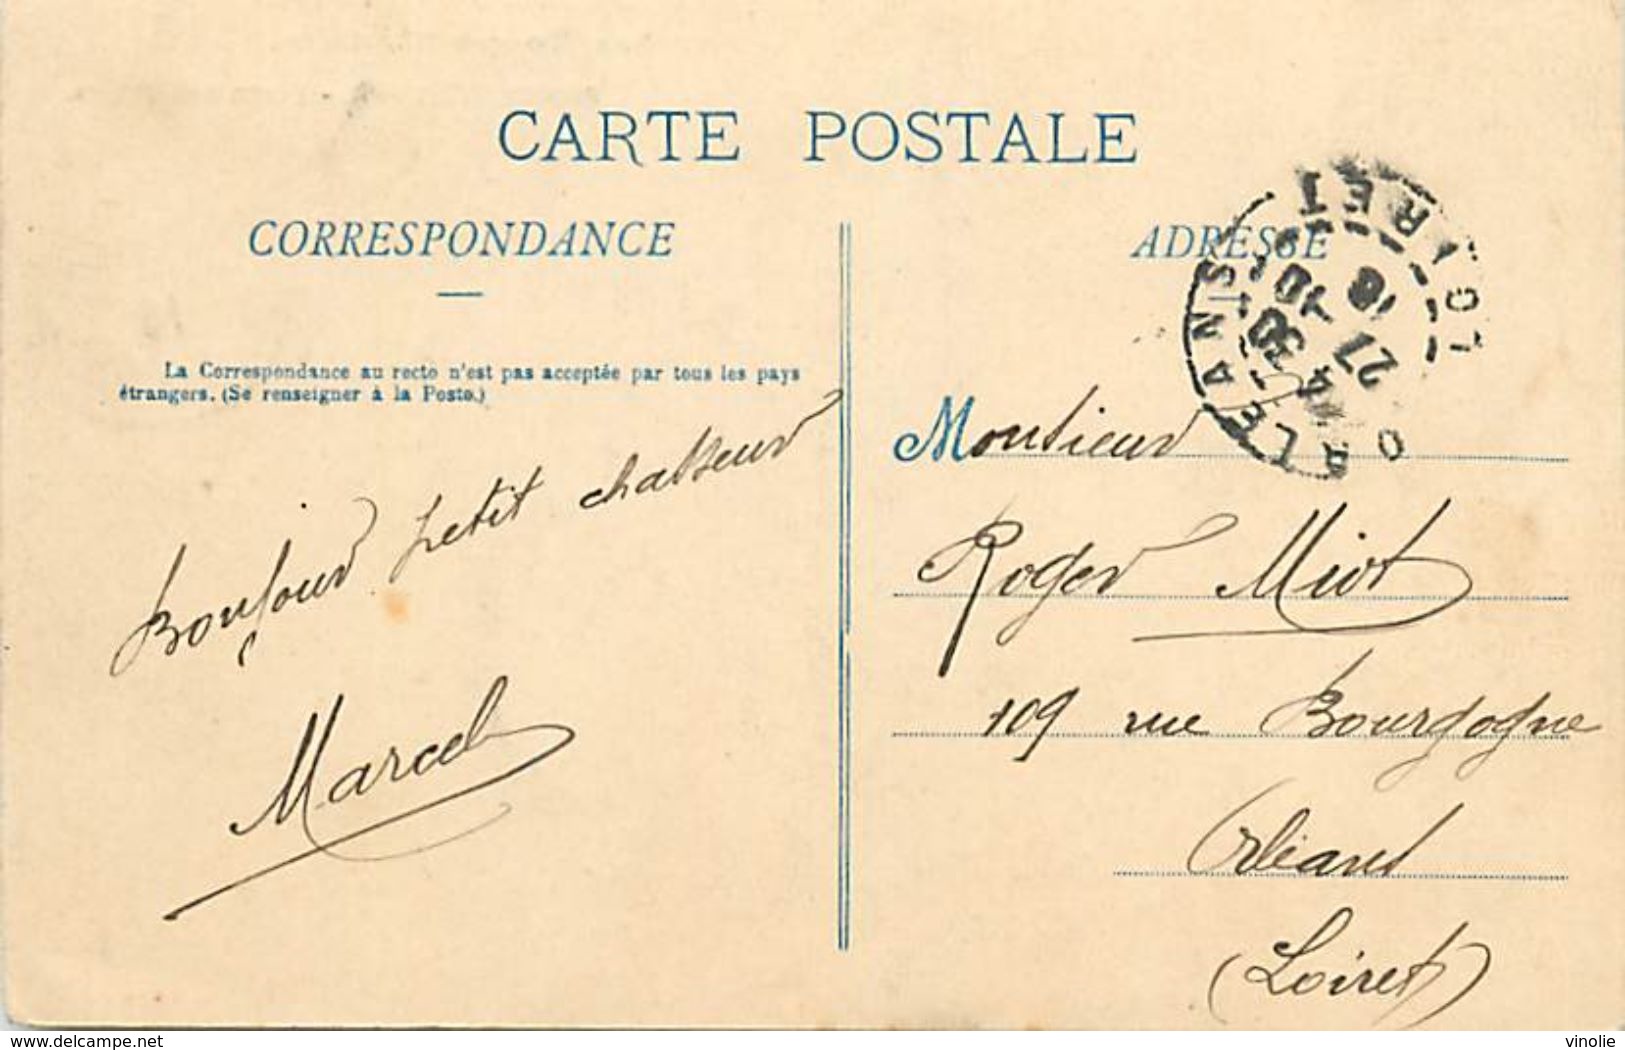 CARTE POSTALE
CORRESPONDANCE
La Correspondance au recto n'est pas acceptée par tous les pays
étrangers. (Se renseigner à la Poste.)
Bonjour petit chasseur
Marcel
ADRESSE
ORLEANS
LOIRET
14 30
27
10
Monsieur
Roger Miot
109 rue Bourgogne
Orléans
(Loiret)
www.delcampe.net
vinolie